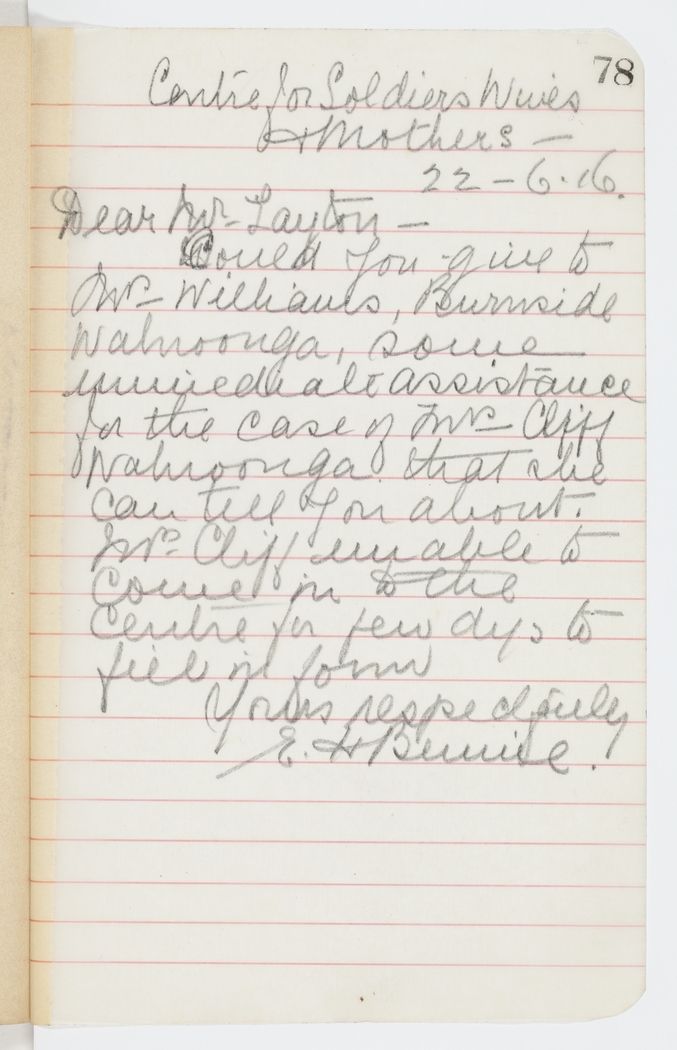 78
Centre for Soldiers Wives
& Mothers —
22 - 6. 16.
Dear Mr. Layton —
Could you give to
Mrs Williams, Burnside
Wahroonga, some
immediate assistance
for the case of Mrs Cliff
Wahroonga that she
can tell you about.
Mrs. Cliff unable to
Come in to the
Centre for few dys to
fill in form
Yours respectfully
E. H